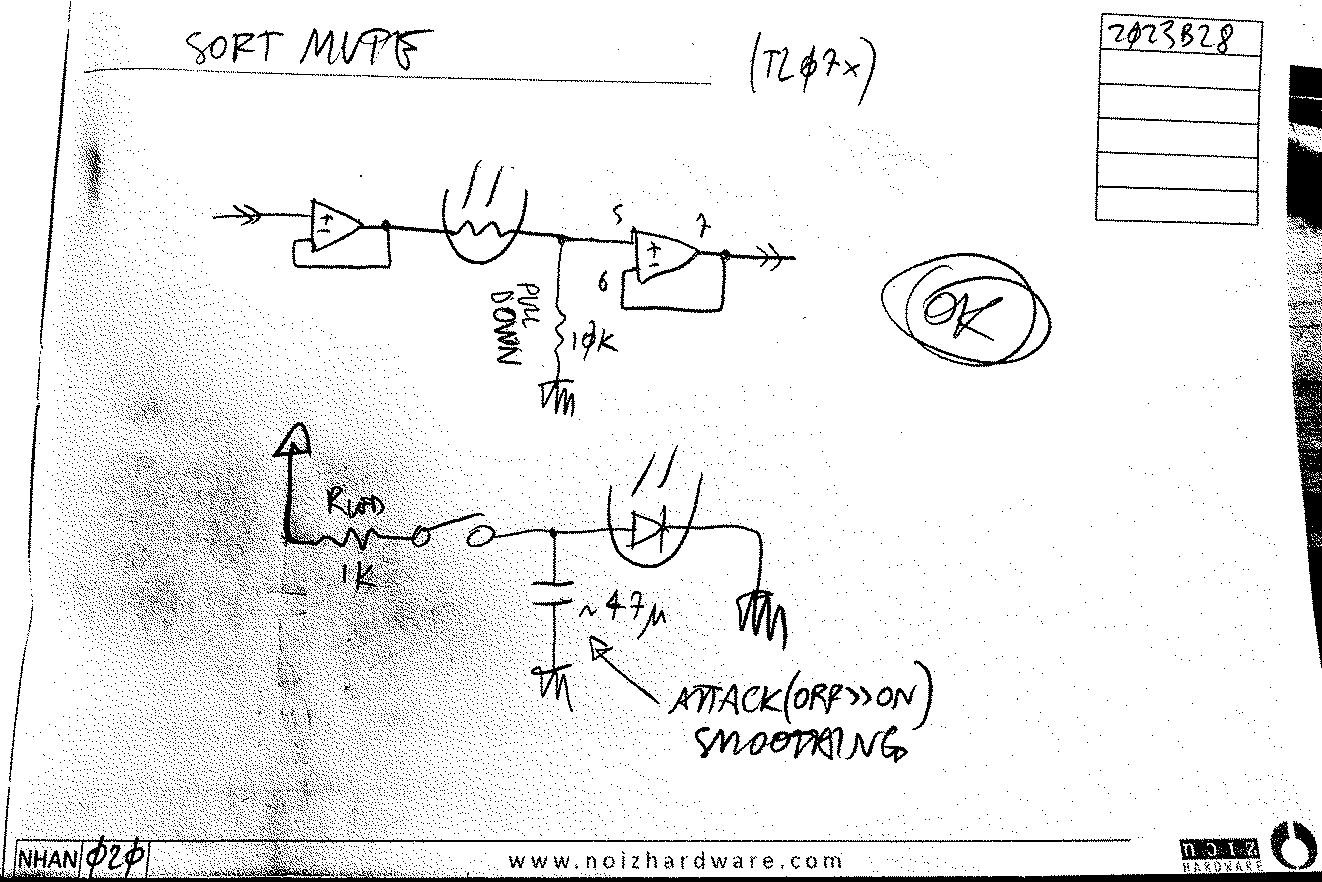 SORT MUTE
(TLØ7x)
2Ø23B28
5
7
+
-
+
-
6
PULL
DOWN
1ØK
OK
RLOAD
1K
~47µ
ATTACK(OFF>>ON)
SMOOTHING
NHAN Ø2Ø
www.noizhardware.com
noiz
HARDWARE